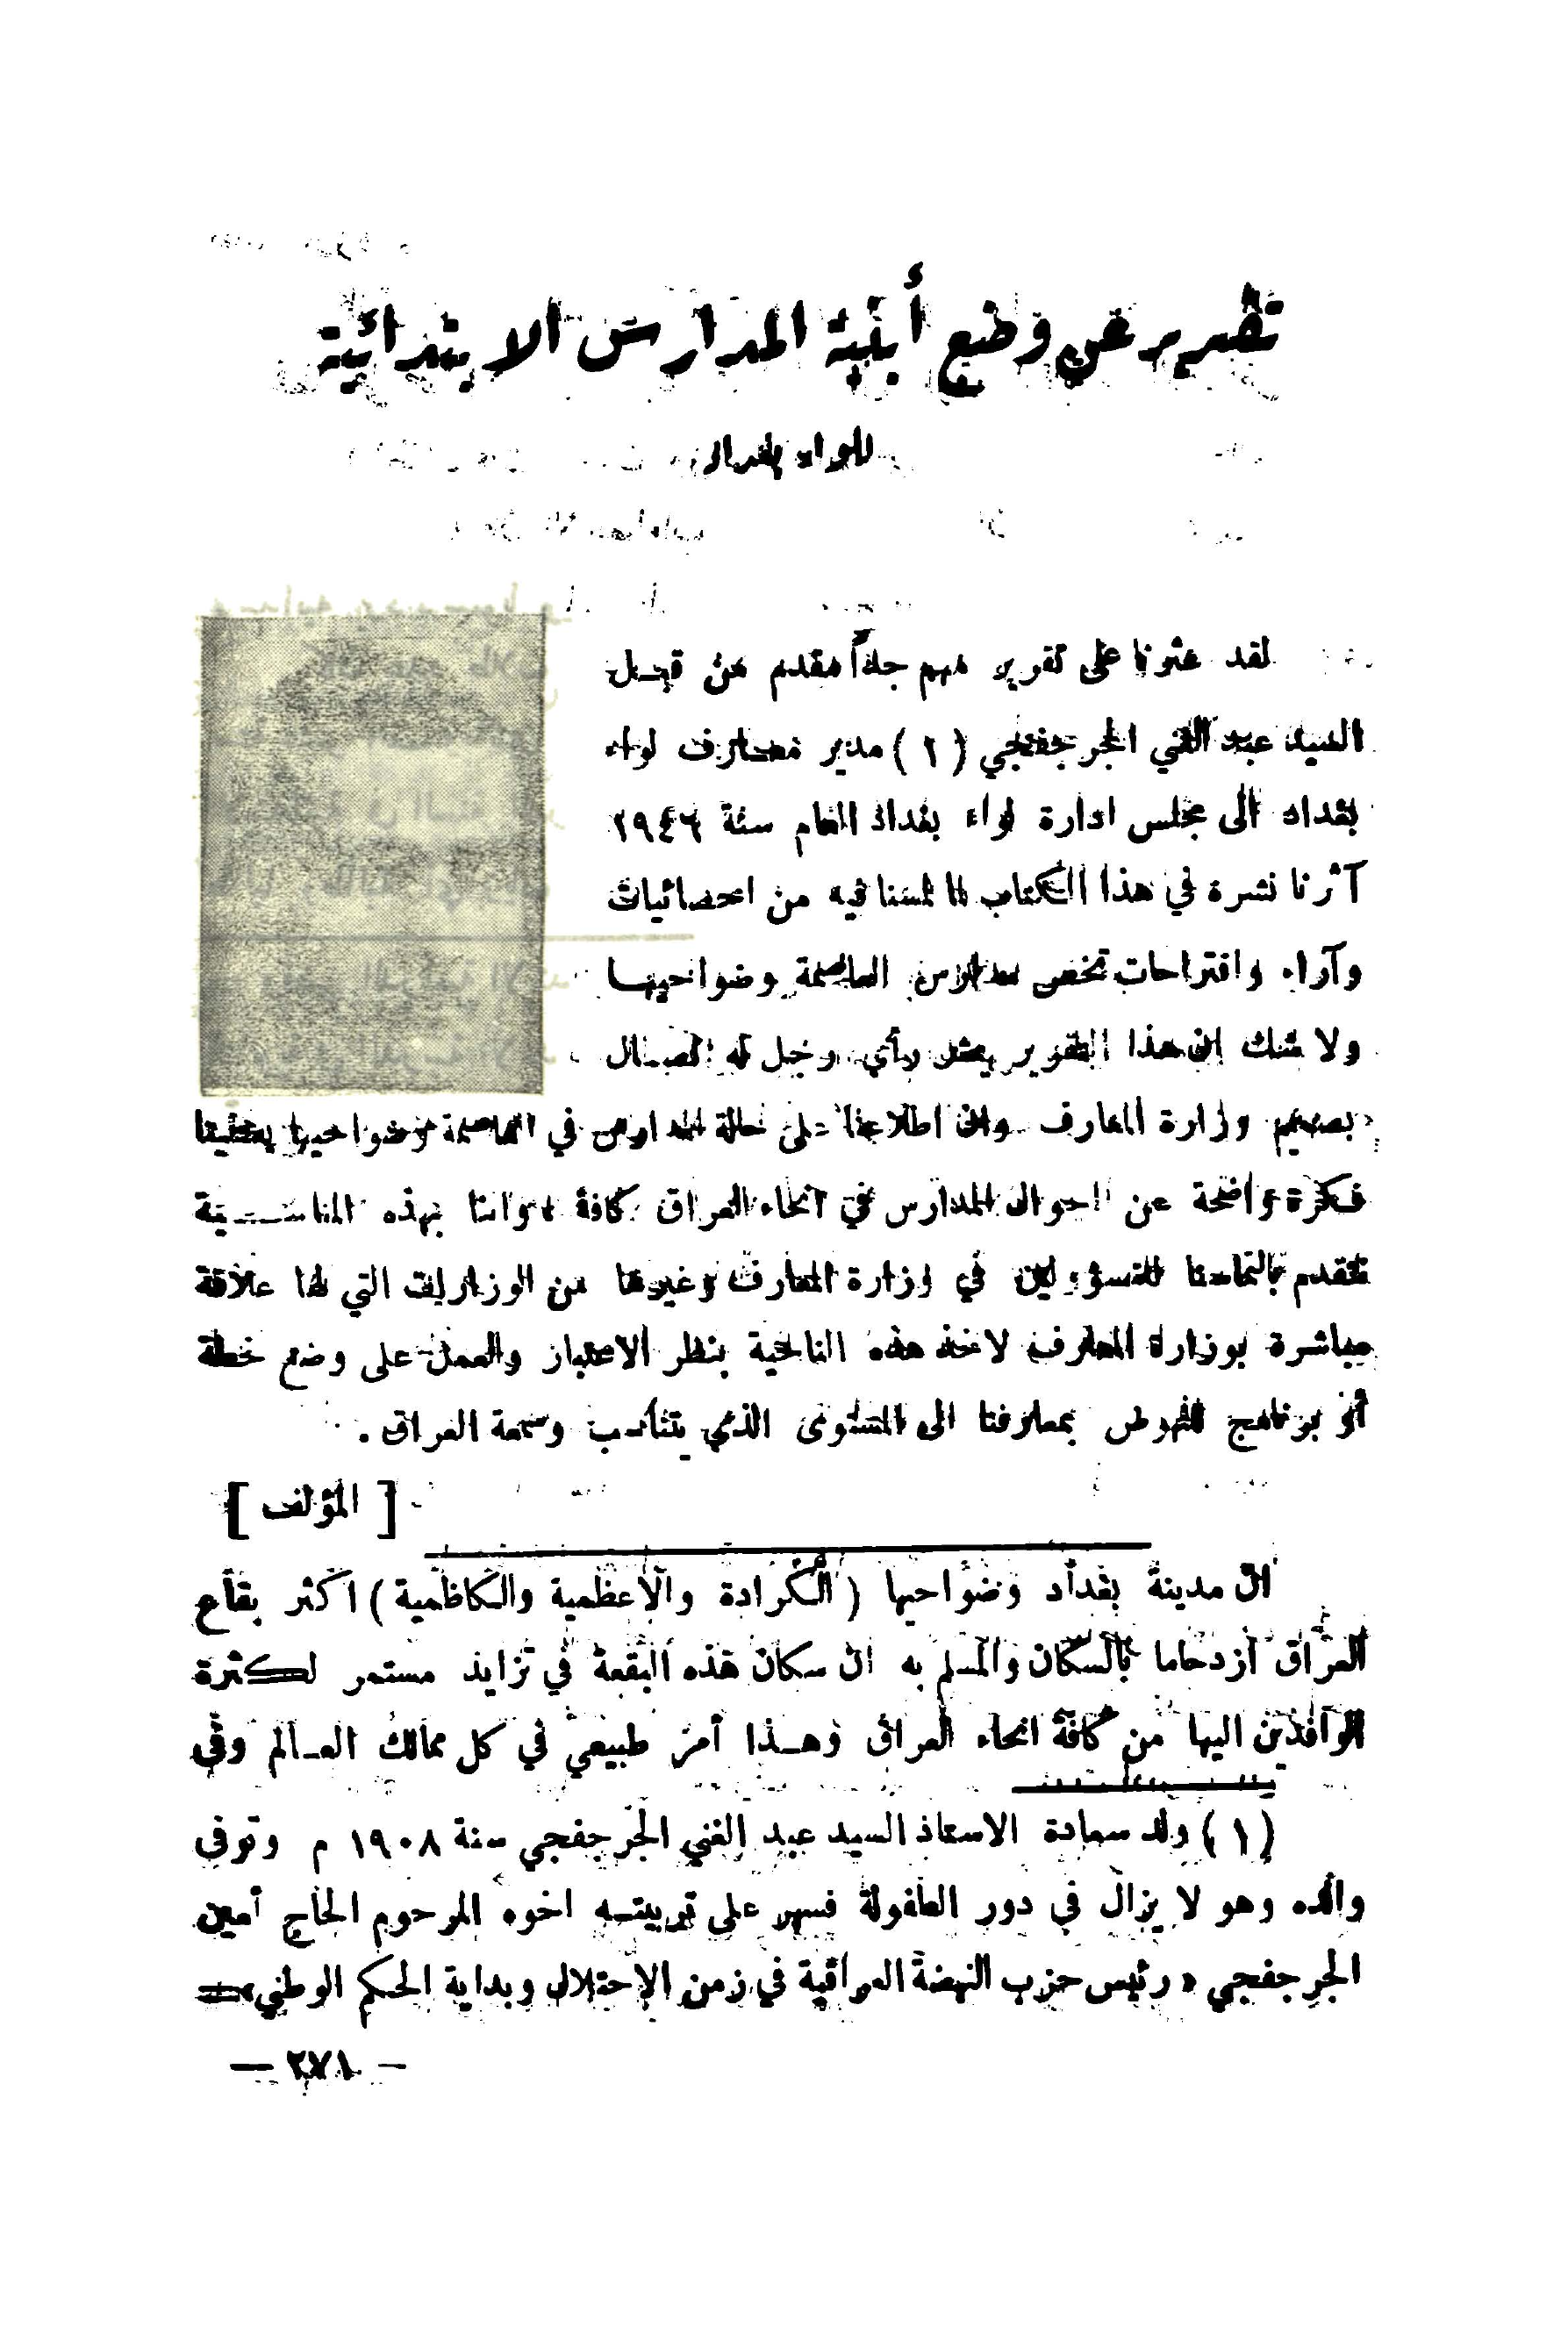 تقرير عن وضع أبنية المدارس الابتدائية
للواء بغداد
لقد عثرنا على تقرير مهم جداً مقدم من قبـل
السيد عبد الغني الجرجفجي (١) مدير معارف لواء
بغداد الى مجلس ادارة لواء بغداد العام سنة ١٩٤٦
آثرنا نشره في هذا الكتاب لما لمسنا فيه من احصائيات
وآراء واقتراحات تخص مدارس العاصمة وضواحيهـا
ولا شك ان هذا التقرير يعتبر رأي رجل له اتصـال
بصميم وزارة المعارف وان اطلاعنا على حالة المدارس في العاصمة وضواحيها يعطينا
فكرة واضحة عن احوال المدارس في انحاء العراق كافة واننا بهذه المناسـبة
نتقدم بالتماسنا للمسؤولين في وزارة المعارف وغيرها من الوزارات التي لها علاقة
مباشرة بوزارة المعارف لاخذ هذه الناحية بنظر الاعتبار والعمل على وضع خطة
أو برنامج للنهوض بمعارفنا الى المستوى الذي يتناسب وسمعة العراق .
[ المؤلف ]
ان مدينة بغداد وضواحيها ( الكرادة والاعظمية والكاظمية ) اكثر بقاع
العراق ازدحاما بالسكان والمسلم به ان سكان هذه البقعة في تزايد مستمر لكثرة
الوافدين اليها من كافة انحاء العراق وهـذا أمر طبيعي في كل ممالك العـالم وفي
(١) ولد سعادة الاستاذ السيد عبد الغني الجرجفجي سنة ١٩٠٨ م وتوفي
والده وهو لا يزال في دور الطفولة فسهر على تربيتـه اخوه المرحوم الحاج أمين
الجرجفجي « رئيس حزب النهضة العراقية في زمن الاحتلال وبداية الحكم الوطني» =
— ٢٧١ —